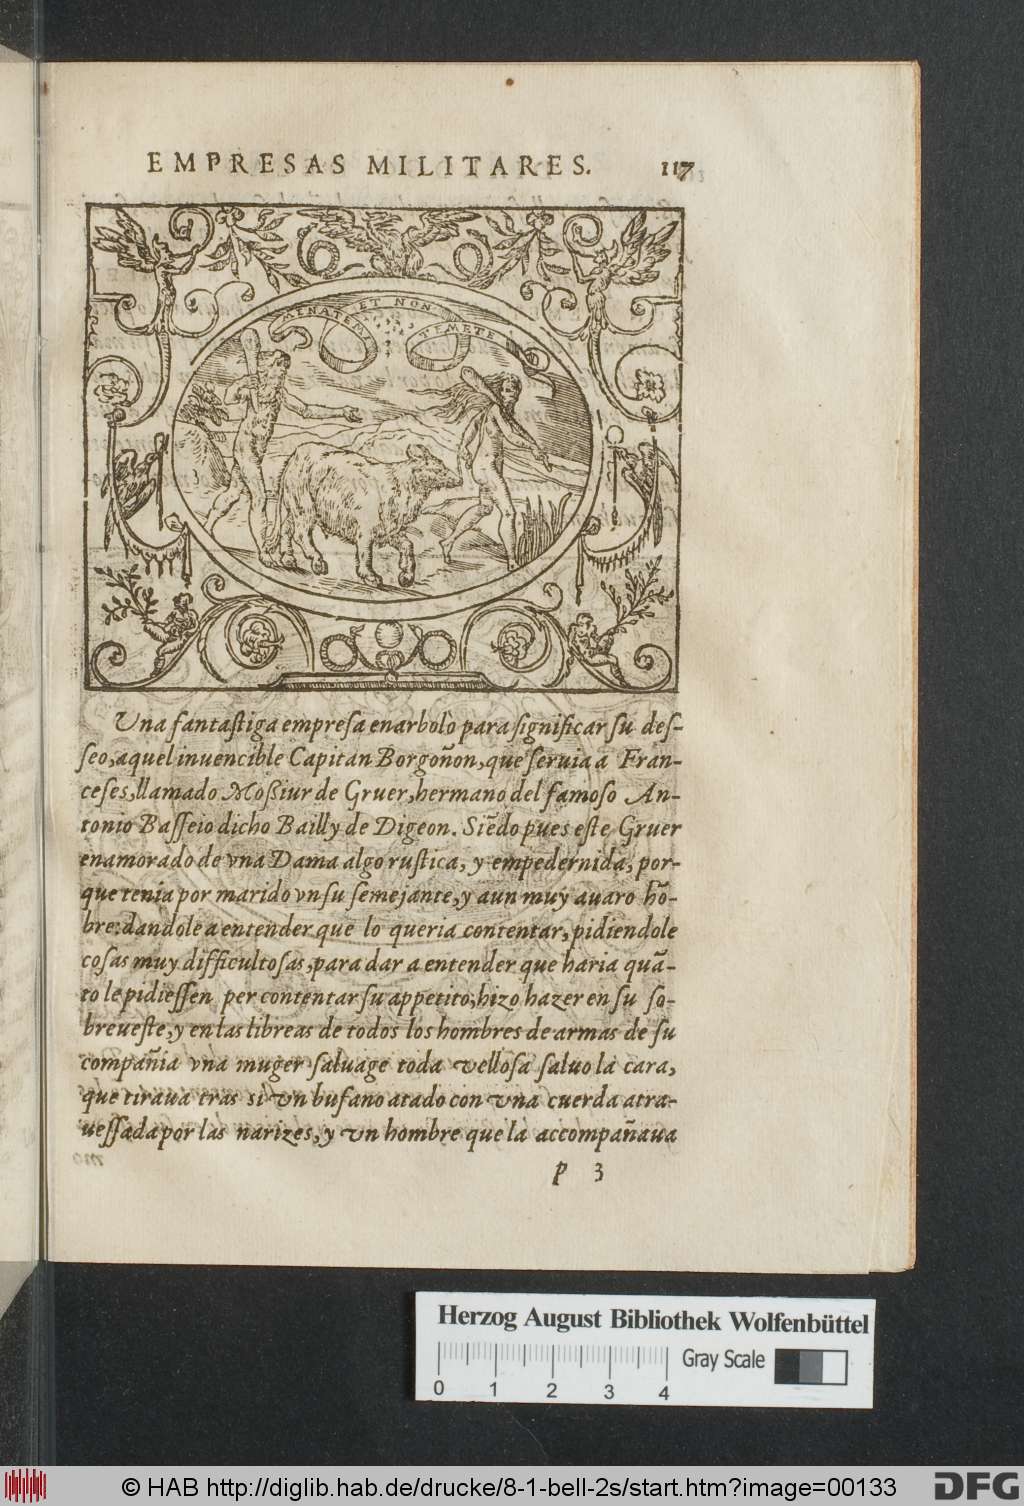 EMPRESAS MILITARES. 117
MENATEM ET NON TEMETE
Una fantastiga empresa enarbolò para significar su des-
seo, aquel inuencible Capitan Borgoñon, que seruia a Fran-
ceses, llamado Moßiur de Gruer, hermano del famoso An-
tonio Basseio dicho Bailly de Digeon. Siẽdo pues este Gruer
enamorado de vna Dama algo rustica, y empedernida, por-
que tenia por marido vn su semejante, y aun muy auaro hõ-
bre: dandole a entender que lo queria contentar, pidiendole
cosas muy difficultosas, para dar a entender que haria quã-
to le pidiessen per contentar su appetito; hizo hazer en su so-
breueste, y en las libreas de todos los hombres de armas de su
compañia vna muger saluage toda vellosa saluo la cara,
que tiraua tras sì vn bufano atado con vna cuerda atra-
uessada por las narizes, y vn hombre que la accompañaua
p 3
Herzog August Bibliothek Wolfenbüttel
Gray Scale
0 1 2 3 4
© HAB http://diglib.hab.de/drucke/8-1-bell-2s/start.htm?image=00133
DFG